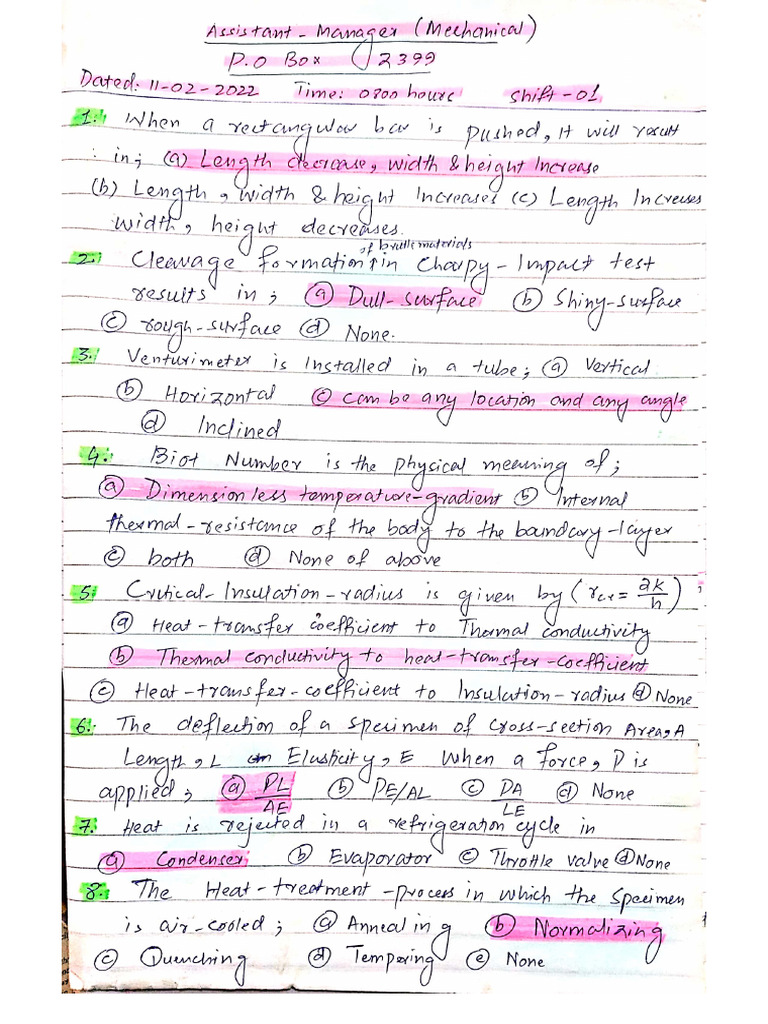 Assistant - Manager (Mechanical)
P.O Box 2399
Dated: 11-02-2022 Time: 0800 hours Shift-01
1. When a rectangular bar is pushed, it will result
in; (a) Length decrease, width & height Increase
(b) Length, width & height Increases (c) Length Increses
width, height decreases.
of brittle materials
2. Cleavage formation in Charpy-Impact test
results in; (a) Dull-surface (b) Shiny-surface
(c) rough-surface (d) None.
3. Venturimeter is installed in a tube; (a) Vertical
(b) Horizontal (c) can be any location and any angle
(d) Inclined
4. Biot Number is the physical meaning of;
(a) Dimensionless temperature-gradient (b) Internal
thermal-resistance of the body to the boundary-layer
(c) both (d) None of above
5. Critical-Insulation-radius is given by (rcr = 2k/h);
(a) Heat-transfer coefficient to Thermal conductivity
(b) Thermal conductivity to heat-transfer-coefficient
(c) Heat-transfer-coefficient to Insulation-radius (d) None
6. The deflection of a specimen of cross-section Area, A
Length, L Elasticity, E when a force, P is
applied; (a) PL/AE (b) PE/AL (c) PA/LE (d) None
7. Heat is rejected in a refrigeration cycle in
(a) Condenser (b) Evaporator (c) Throttle valve (d) None
8. The Heat-treatment-process in which the specimen
is air-cooled; (a) Annealing (b) Normalizing
(c) Quenching (d) Tempering (e) None